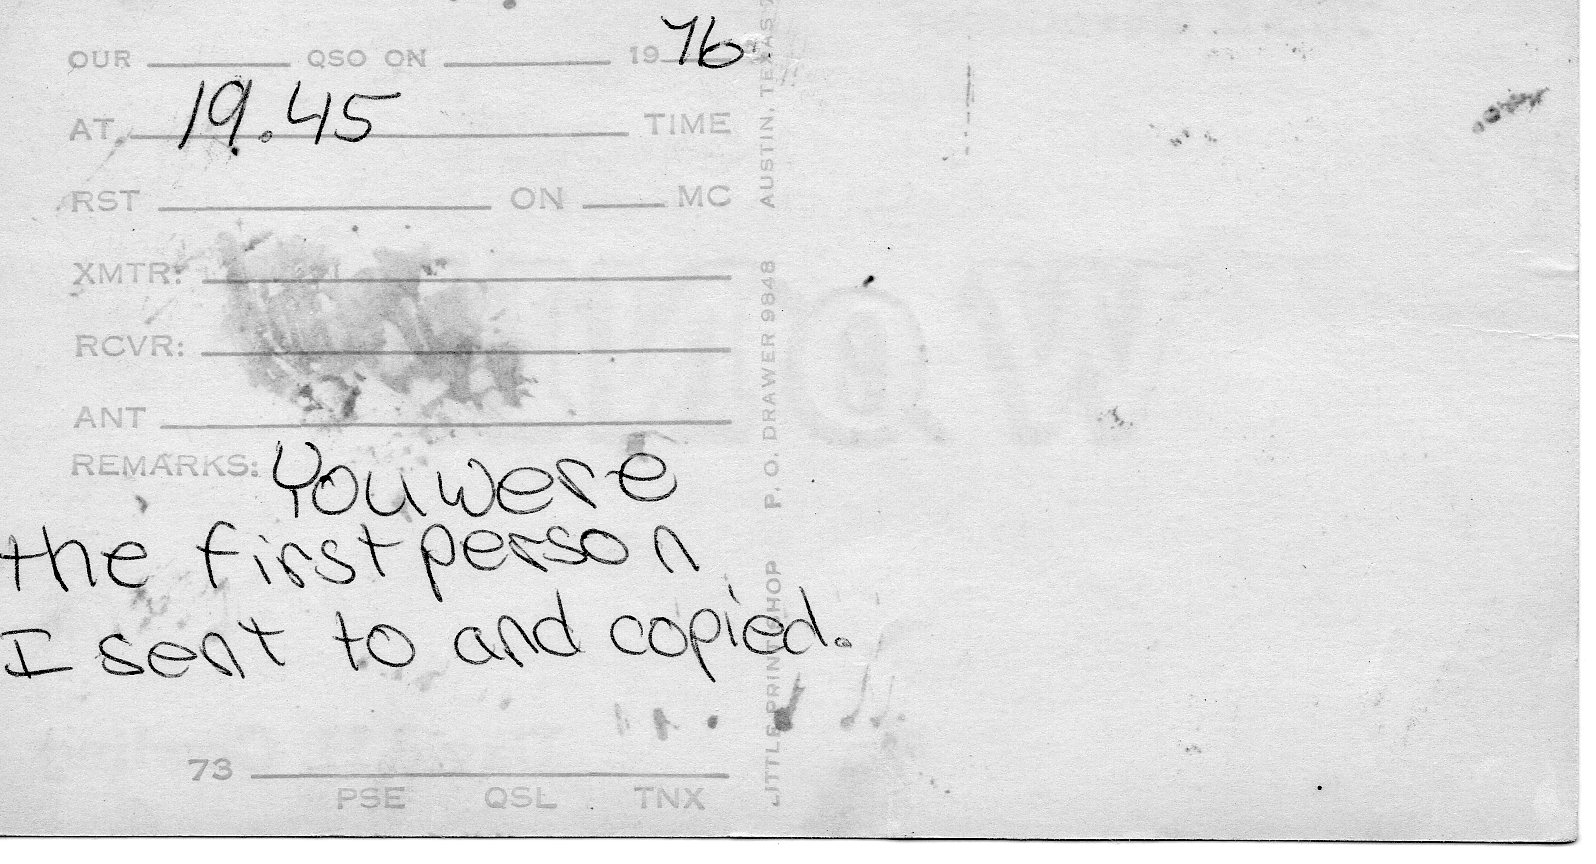 OUR QSO ON 19 76
AT 19.45 TIME
RST ON MC
XMTR:
RCVR:
ANT
REMARKS: You were
the first person
I sent to and copied.
73
PSE QSL TNX
LITTLE PRINT SHOP P. O. DRAWER 9848 AUSTIN, TEXAS